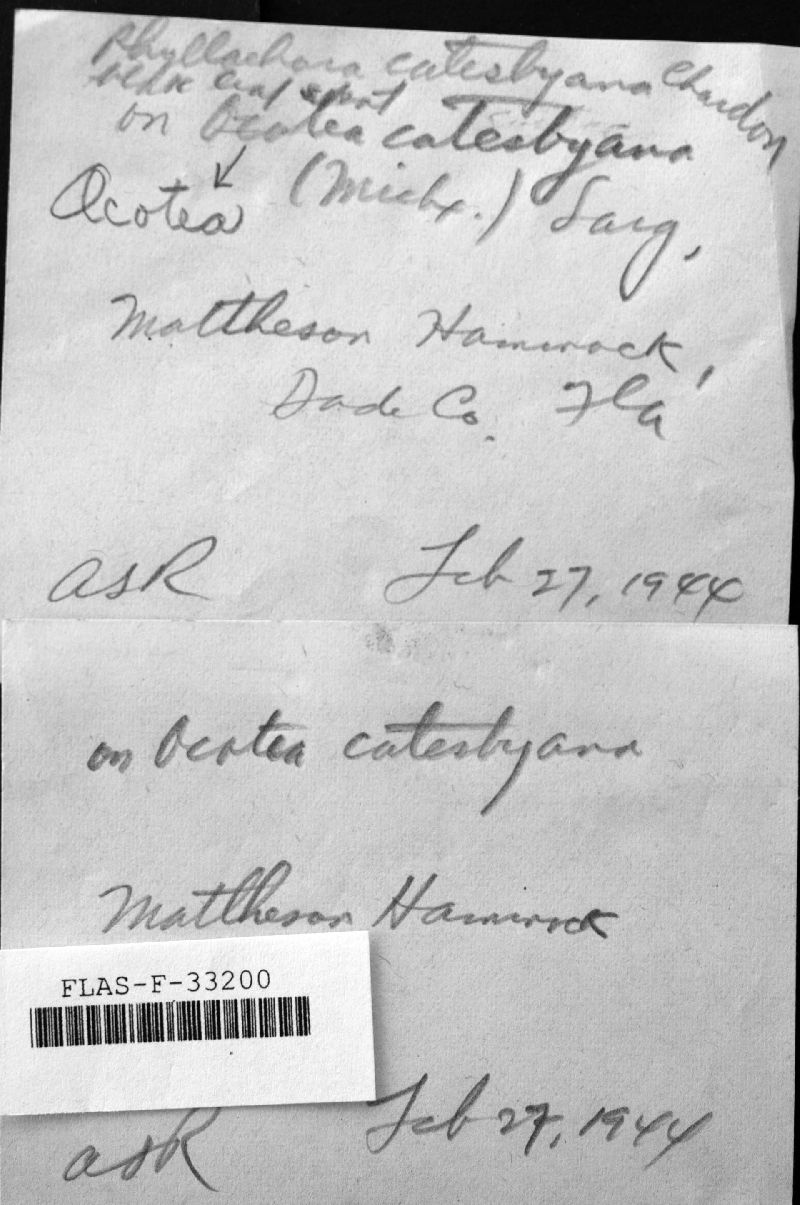 Phyllachora catesbyana Chardon
leaf spot
on Ocotea catesbyana
Ocotea (Michx.) Sarg,
Mattheson Hammock,
Dade Co. Fla
ASR Feb 27, 1944
on Ocotea catesbyana
Mattheson Hammock
FLAS-F-33200
ASR Feb 27, 1944